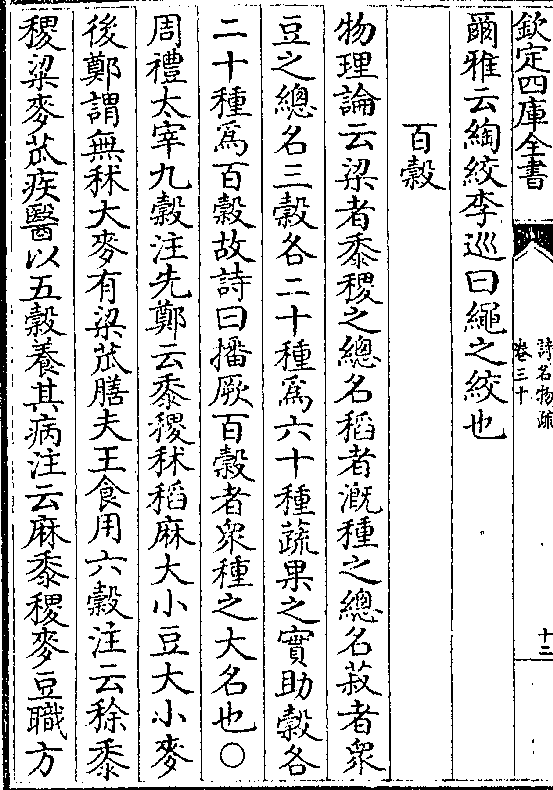 欽定四庫全書
詩名物疏
卷三十
十三
爾雅云綯絞李巡曰繩之絞也
百穀
物理論云梁者黍稷之總名稻者溉種之總名菽者衆
豆之總名三穀各二十種爲六十種蔬果之實助穀各
二十種爲百穀故詩曰播厥百穀者衆種之大名也○
周禮太宰九穀注先鄭云黍稷秫稻麻大小豆大小麥
後鄭謂無秫大麥有粱苽膳夫王食用六穀注云稌黍
稷粱麥苽疾醫以五穀養其病注云麻黍稷麥豆職方